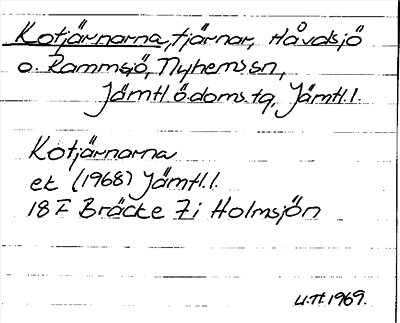 Kotjärnarna, tjärnar, Håvdsjö
o. Rammsjö, Nyhems sn,
Jämtl. ö. doms. tg, Jämtl. l.
Kotjärnarna
ek (1968) Jämtl. l.
18 F Bräcke 7 i Holmsjön
U.H. 1969.